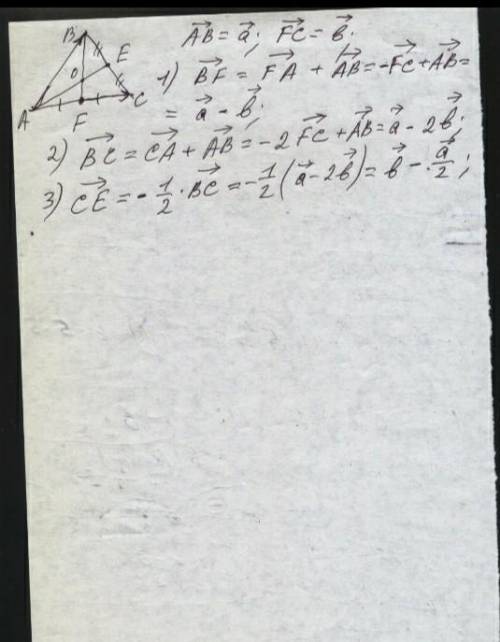 B
E
O
A
F
C
AB⃗ = a⃗; FC⃗ = b⃗.
1) BF⃗ = FA⃗ + AB⃗ = -FC⃗ + AB⃗ =
= a⃗ - b⃗;
2) BC⃗ = CA⃗ + AB⃗ = -2FC⃗ + AB⃗ = a⃗ - 2b⃗;
3) CE⃗ = -1/2 · BC⃗ = -1/2(a⃗ - 2b⃗) = b⃗ - a⃗/2;